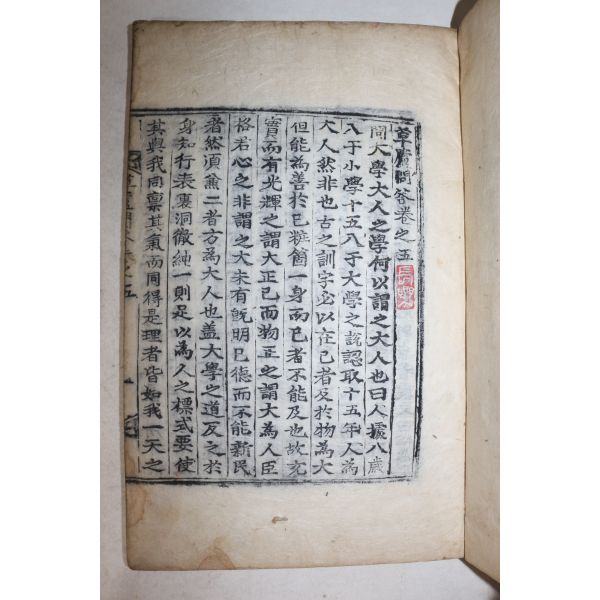 草廬問答卷之五
問大學大人之學何以謂之大人也曰人據八歲
入于小學十五入于大學之說認取十五年人為
大人然非也古之訓字必以在己者反於物為大
但能為善於己粧篩一身而已者不能及也故充
實而有光輝之謂大正己而物正之謂大為人臣
格君心之非謂之大未有旣明己德而不能新民
者然須兼二者方為大人也盖大學之道反之於
身知行表裏洞徹純一則足以為人之標式要使
其與我同禀其氣而同得是理者皆如我一天之